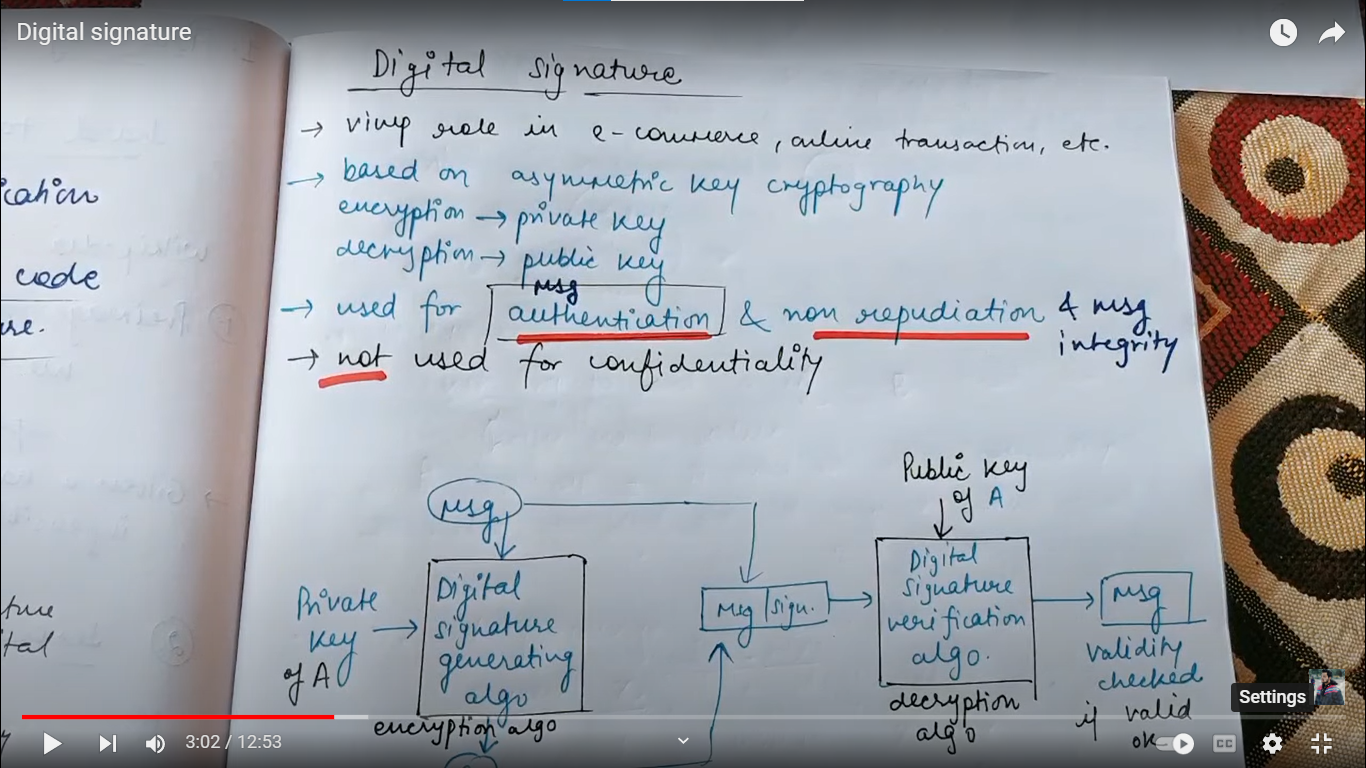 Digital signature
Digital signature
→ vimp role in e-commerce, online transaction, etc.
→ based on asymmetric key cryptography
encryption → private key
decryption → public key
msg
→ used for authentication & non repudiation & msg
integrity
→ not used for confidentiality
ication
code
ture
tal
msg
Private
key
of A
Digital
signature
generating
algo
encryption algo
msg | sign.
Public key
of A
Digital
signature
verification
algo.
decryption
algo
msg
validity
checked
if valid
ok
Settings
3:02 / 12:53
CC